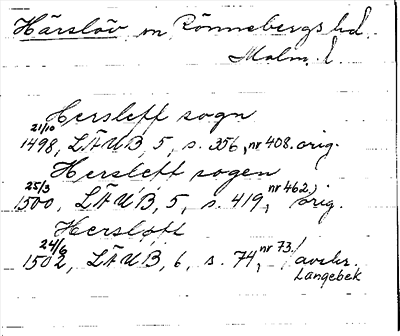 Härslöv sn Rönnebergs hd.
Malm. l.
Hersleff sogn
21/10
1498, LÄUB 5, s. 356, nr 408. orig.
Hersleff sogen
25/3
1500, LÄUB, 5, s. 419, nr 462. orig.
Hersløff
24/6
1502, LÄUB, 6, s. 74, nr 73. avskr.
Langebek